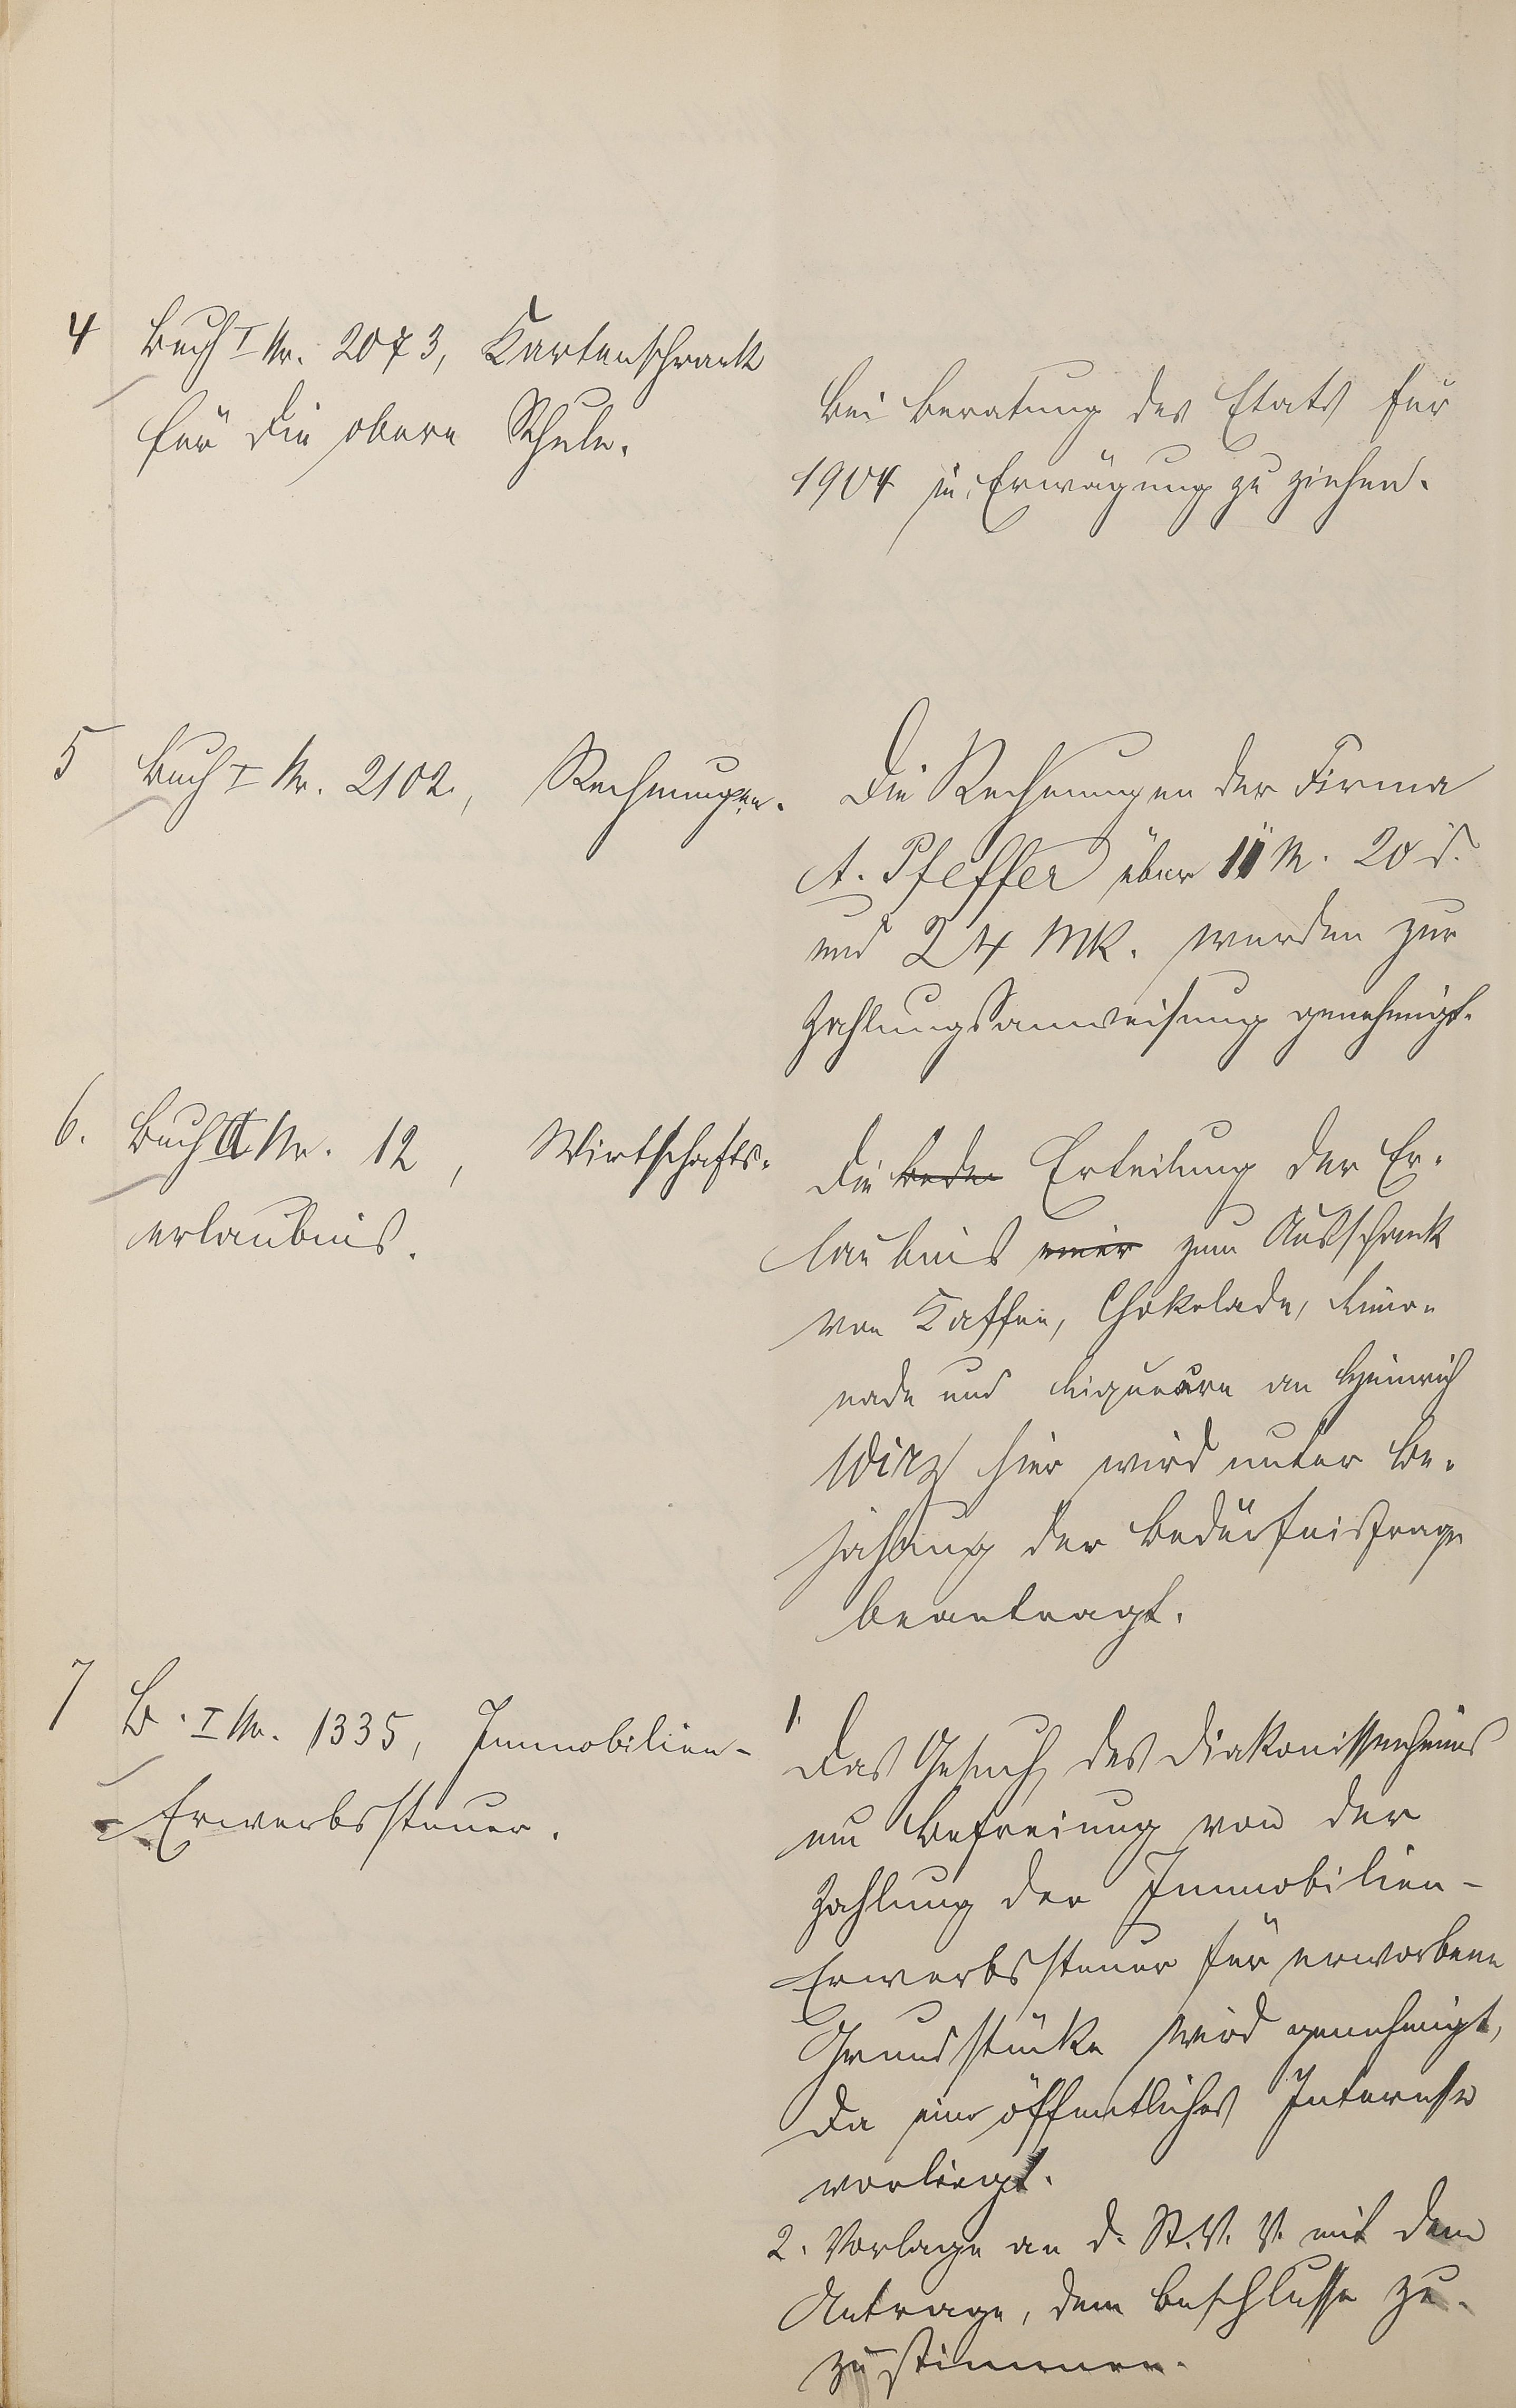 4 Buch I Nr. 2073, Kartenschrank
für die obere Schule.
Bei Beratung des Etats für
1904 in Erwägung zu ziehen.
5 Buch I Nr. 2102, Rechnungen.
Die Rechnungen der Firma
A. Pfeffer über 11 M. 20 d.
und 24 MK. werden zur
Zahlungsanweisung genehmigt.
6. Buch II Nr. 12, Wirtschafts-
erlaubnis.
Die Erteilung der Er-
laubnis einer zum Ausschank
von Kaffee, Chokolade, Limo-
nade und Liqueuren an Heinrich
hier wird unter Be-
jahung der Bedürfnisfrage
beantragt.
7 B. I Nr. 1335, Immobilien-
Erwerbssteuer.
1. Das Gesuch des Diakonissenheims
um Befreiung von der
Zahlung der Immobilien-
Erwerbssteuer für erworbene
Grundstücke wird genehmigt,
da ein öffentliches Interesse
vorliegt.
2. Vorlage an d. St. V. V. mit dem
Antrage, dem Beschlusse zu-
zustimmen.